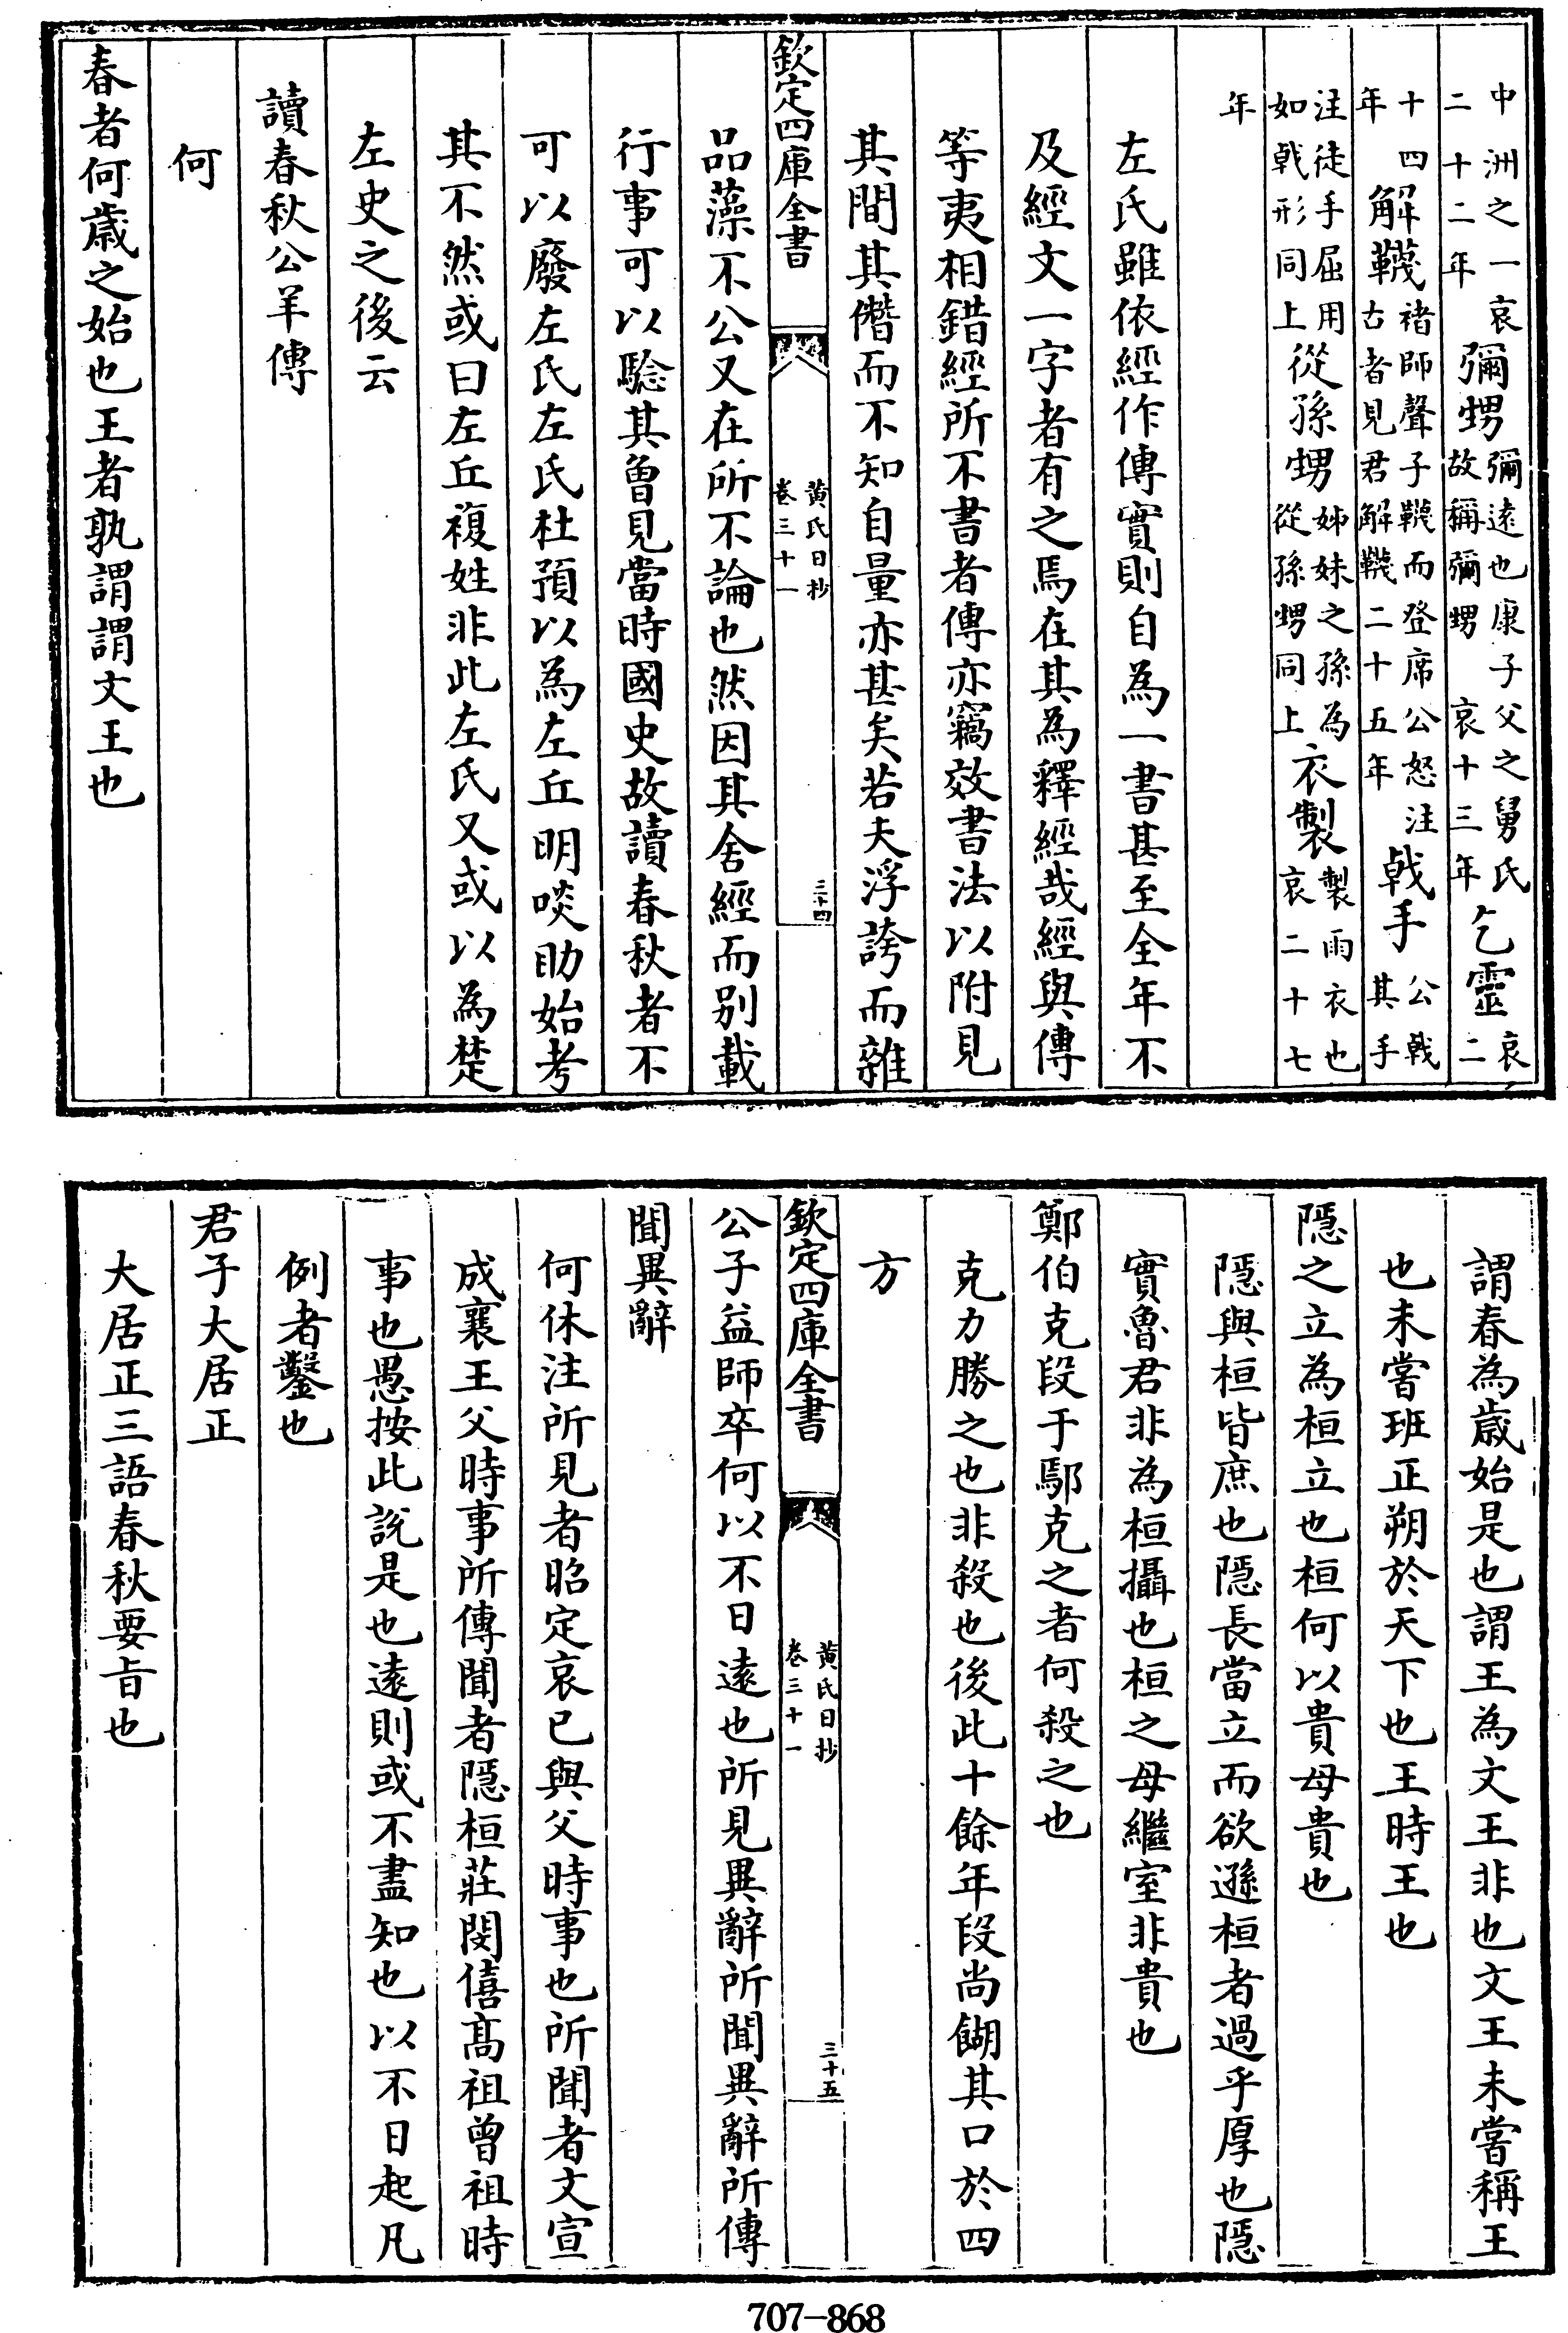 中洲之一哀二十二年彌甥彌遠也康子父之舅氏故稱彌甥哀十三年乞靈哀二
十四年解韈褚師聲子韈而登席公怒注古者見君解韈二十五年戟手公戟其手
注徒手屈用如戟形同上從孫甥姊妹之孫為從孫甥同上衣製製雨衣也哀二十七
年
左氏雖依經作傳實則自為一書甚至全年不
及經文一字者有之焉在其為釋經哉經與傳
等夷相錯經所不書者傳亦竊效書法以附見
其間其僭而不知自量亦甚矣若夫浮誇而雜
欽定四庫全書
黃氏日抄
卷三十一
三十四
品藻不公又在所不論也然因其舍經而别載
行事可以驗其魯見當時國史故讀春秋者不
可以廢左氏左氏杜預以為左丘明啖助始考
其不然或曰左丘複姓非此左氏又或以為楚
左史之後云
讀春秋公羊傳
何
春者何歲之始也王者孰謂謂文王也
謂春為歲始是也謂王為文王非也文王未嘗稱王
也未嘗班正朔於天下也王時王也
隱之立為桓立也桓何以貴母貴也
隱與桓皆庶也隱長當立而欲遜桓者過乎厚也隱
實魯君非為桓攝也桓之母繼室非貴也
鄭伯克段于鄢克之者何殺之也
克力勝之也非殺也後此十餘年段尚餬其口於四
方
欽定四庫全書
黃氏日抄
卷三十一
三十五
公子益師卒何以不日遠也所見異辭所聞異辭所傳
聞異辭
何休注所見者昭定哀已與父時事也所聞者文宣
成襄王父時事所傳聞者隱桓莊閔僖髙祖曾祖時
事也愚按此說是也遠則或不盡知也以不日起凡
例者鑿也
君子大居正
大居正三語春秋要旨也
707-868